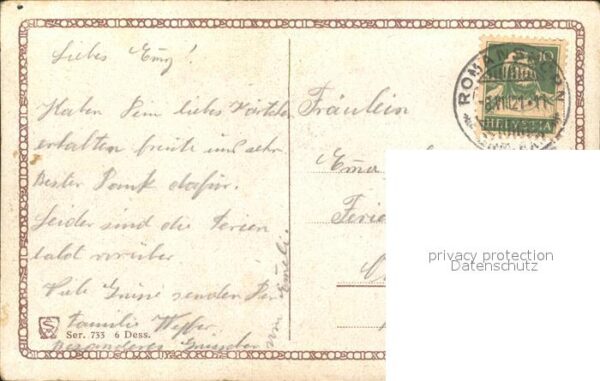 Liebes Emy!
Haben Dein liebes Kärtchen
erhalten freute uns sehr
Besten Dank dafür.
Leider sind die Ferien
bald vorüber
Viele Grüsse senden Dir
Familie
Besonderes
von Emeli.
Ser. 733 6 Dess.
Fräulein
Ema
10
ROMANSHORN
HELVETIA
privacy protection
Datenschutz